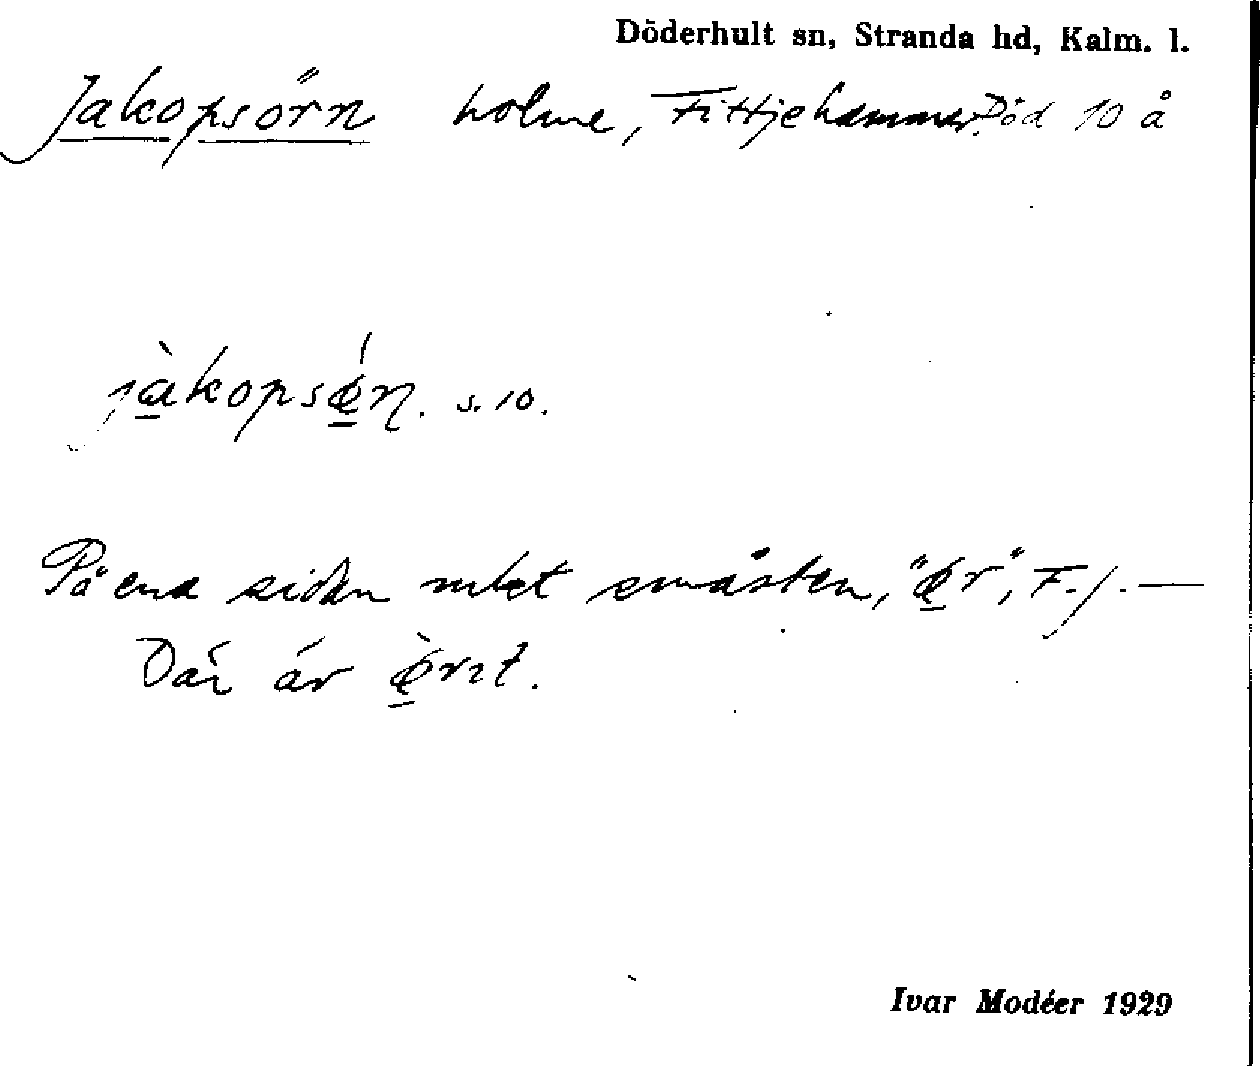 Döderhult sn, Stranda hd, Kalm. l.
Jakopsörn holme, Fittjehammar, Död 10 å
jàkopsǿn. s. 10.
På ena sidan mket småsten, "ør", F. J. —
Där är ø̀rnt.
Ivar Modéer 1929